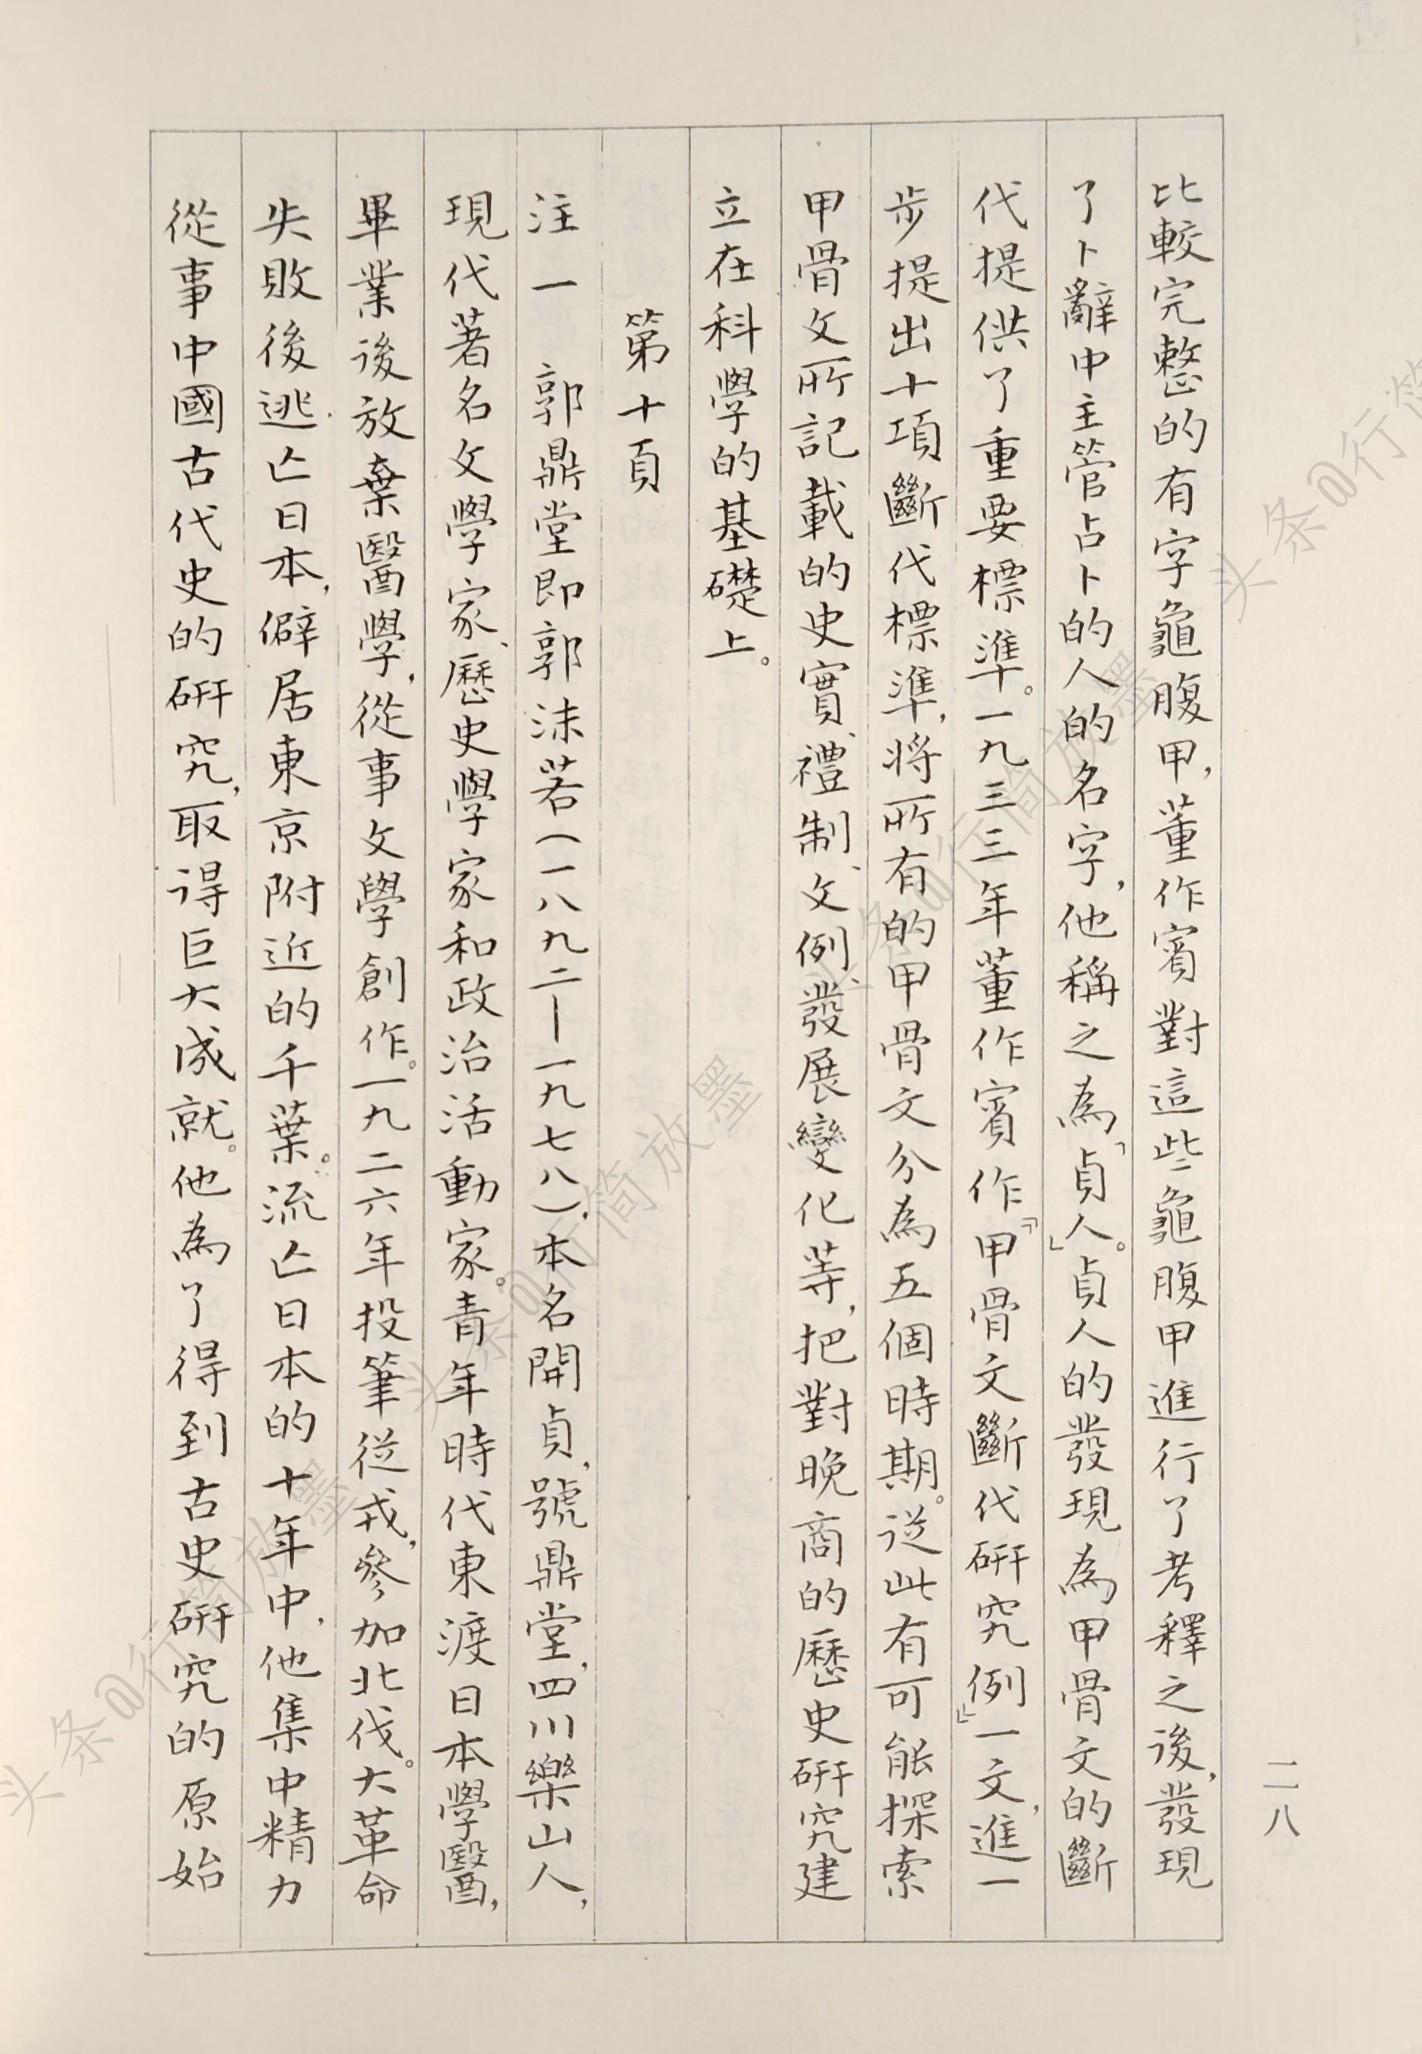 比較完整的有字龜腹甲，董作賓對這些龜腹甲進行了考釋之後，發現
了卜辭中主管占卜的人的名字，他稱之為「貞人」。貞人的發現為甲骨文的斷
代提供了重要標準。一九三三年董作賓作『甲骨文斷代研究例』一文，進一
步提出十項斷代標準，將所有的甲骨文分為五個時期。從此有可能探索
甲骨文所記載的史實、禮制、文例、發展變化等，把對晚商的歷史研究建
立在科學的基礎上。
第十頁
注一 郭鼎堂即郭沫若（一八九二—一九七八），本名開貞，號鼎堂，四川樂山人，
現代著名文學家、歷史學家和政治活動家。青年時代東渡日本學醫，
畢業後放棄醫學，從事文學創作。一九二六年投筆從戎，參加北伐。大革命
失敗後逃亡日本，僻居東京附近的千葉。流亡日本的十年中，他集中精力
從事中國古代史的研究，取得巨大成就。他為了得到古史研究的原始
二八
头条@行简放墨
头条@行简放墨
头条@行简放墨
头条@行简